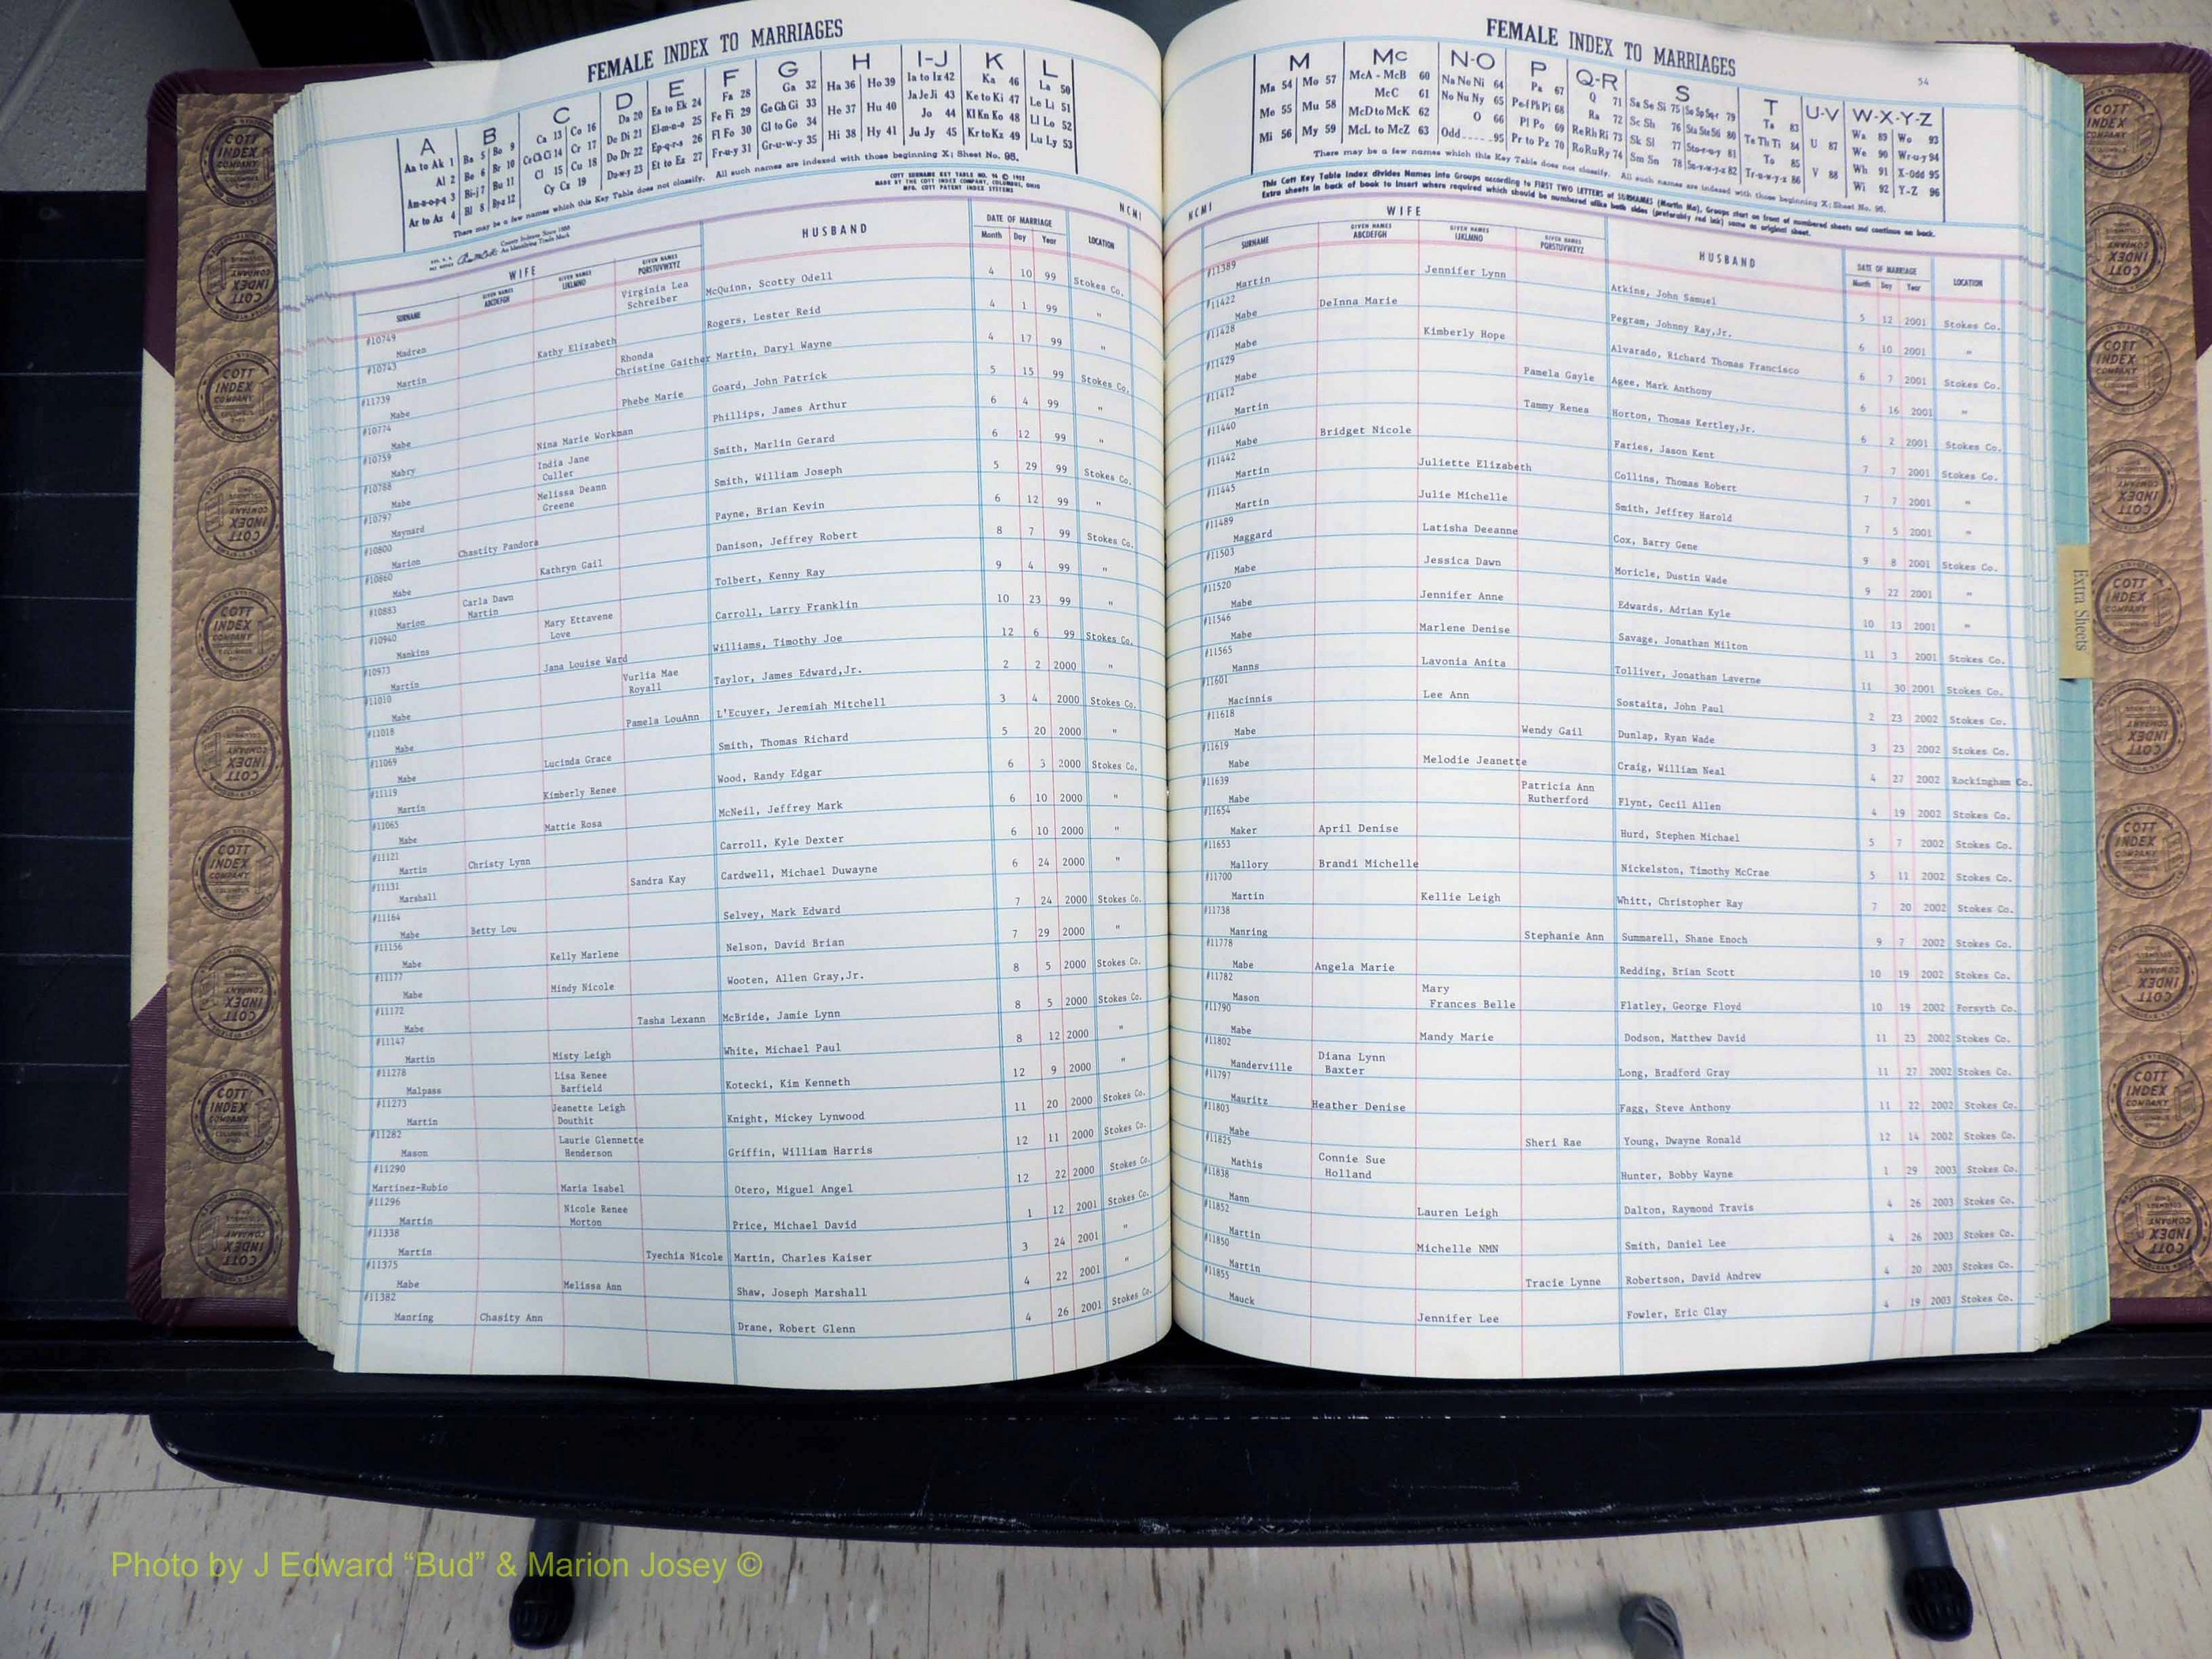 FEMALE INDEX TO MARRIAGES
A B C D E F G H I-J K L
Aa to Ak 1 Ba 5 Bo 9 Ca 13 Co 16 Da 20 Ea to Ek 24 Fa 28 Ga 32 Ha 36 Ho 39 Ia to Iz 42 Ka 46 La 50
Al 2 Be 6 Br 10 Ce Ch Ci 14 Cr 17 De Di 21 El-m-n-o 25 Fe Fi 29 Ge Gh Gi 33 He 37 Hu 40 Ja Je Ji 43 Ke to Ki 47 Le Li 51
Am-n-o-p-q 3 Bi-j 7 Bu 11 Cl 15 Cu 18 Do Dr 22 Ep-q-r-s 26 Fl Fo 30 Gl to Go 34 Hi 38 Hy 41 Jo 44 Kl Kn Ko 48 Ll Lo 52
Ar to Az 4 Bl 8 Bya 12 Cy Cz 19 Du-w-y 23 Et to Ez 27 Fr-u-y 31 Gr-u-w-y 35 Ju Jy 45 Kr to Kz 49 Lu Ly 53
There may be a few names which this Key Table does not classify. All such names are indexed with those beginning X; Sheet No. 95.
COTT SURNAME KEY TABLE NO.
MADE BY THE COTT INDEX COMPANY, COLUMBUS, OHIO
MFG. COTT PATENT INDEX SYSTEMS
County Indexes Since 1888
An Identifying Trade Mark
NCMI
WIFE HUSBAND DATE OF MARRIAGE LOCATION
SURNAME GIVEN NAMES ABCDEFGH GIVEN NAMES IJKLMNO GIVEN NAMES PQRSTUVWXYZ Month Day Year
#10749 Madren Virginia Lea Schreiber McQuinn, Scotty Odell 4 10 99 Stokes Co.
#10743 Martin Kathy Elizabeth Rogers, Lester Reid 4 1 99 "
#11739 Mabe Rhonda Christine Gaither Martin, Daryl Wayne 4 17 99 "
#10774 Mabe Phebe Marie Goard, John Patrick 5 15 99 Stokes Co.
#10759 Mabry Nina Marie Workman Phillips, James Arthur 6 4 99 "
#10788 Mabe India Jane Culler Smith, Marlin Gerard 6 12 99 "
#10797 Maynard Melissa Deann Greene Smith, William Joseph 5 29 99 Stokes Co.
#10800 Marion Chastity Pandora Payne, Brian Kevin 6 12 99 "
#10860 Mabe Kathryn Gail Danison, Jeffrey Robert 8 7 99 Stokes Co.
#10883 Marion Carla Dawn Martin Tolbert, Kenny Ray 9 4 99 "
#10940 Mankins Mary Ettavene Love Carroll, Larry Franklin 10 23 99 "
#10973 Martin Jana Louise Ward Williams, Timothy Joe 12 6 99 Stokes Co.
#11010 Mabe Vurlia Mae Royall Taylor, James Edward,Jr. 2 2 2000 "
#11018 Mabe Pamela LouAnn L'Ecuyer, Jeremiah Mitchell 3 4 2000 Stokes Co.
#11069 Mabe Lucinda Grace Smith, Thomas Richard 5 20 2000 "
#11119 Martin Kimberly Renee Wood, Randy Edgar 6 3 2000 Stokes Co.
#11065 Mabe Mattie Rosa McNeil, Jeffrey Mark 6 10 2000 "
#11121 Martin Christy Lynn Carroll, Kyle Dexter 6 10 2000 "
#11131 Marshall Sandra Kay Cardwell, Michael Duwayne 6 24 2000 "
#11164 Mabe Betty Lou Selvey, Mark Edward 7 24 2000 Stokes Co.
#11156 Mabe Kelly Marlene Nelson, David Brian 7 29 2000 "
#11177 Mabe Mindy Nicole Wooten, Allen Gray,Jr. 8 5 2000 Stokes Co.
#11172 Mabe Tasha Lexann McBride, Jamie Lynn 8 5 2000 Stokes Co.
#11147 Martin Misty Leigh White, Michael Paul 8 12 2000 "
#11278 Malpass Lisa Renee Barfield Kotecki, Kim Kenneth 12 9 2000 "
#11273 Martin Jeanette Leigh Douthit Knight, Mickey Lynwood 11 20 2000 Stokes Co.
#11282 Mason Laurie Glennette Henderson Griffin, William Harris 12 11 2000 Stokes Co.
#11290 Martinez-Rubio Maria Isabel Otero, Miguel Angel 12 22 2000 Stokes Co.
#11296 Martin Nicole Renee Morton Price, Michael David 1 12 2001 Stokes Co.
#11338 Martin Tyechia Nicole Martin, Charles Kaiser 3 24 2001 "
#11375 Mabe Melissa Ann Shaw, Joseph Marshall 4 22 2001 "
#11382 Manring Chasity Ann Drane, Robert Glenn 4 26 2001 Stokes Co.
FEMALE INDEX TO MARRIAGES
54
M Mc N-O P Q-R S T U-V W-X-Y-Z
Ma 54 Mo 57 McA - McB 60 Na Ne Ni 64 Pa 67 Q 71 Sa Se Si 75 So Sp Sq-r 79 Ta 83 U 87 Wa 89 Wo 93
Me 55 Mu 58 McC 61 No Nu Ny 65 Pe-f Ph Pi 68 Ra 72 Sc Sh 76 Sta Ste Sti 80 Te Th Ti 84 V 88 We 90 Wr-u-y 94
Mi 56 My 59 McD to McK 62 O 66 Pl Po 69 Re Rh Ri 73 Sk Sl 77 Sto-r-u-y 81 To 85 Wh 91 X-Odd 95
McL to McZ 63 Odd 95 Pr to Pz 70 Ro Ru Ry 74 Sm Sn 78 Su-v-w-y-z 82 Tr-u-w-y-z 86 Wi 92 Y-Z 96
There may be a few names which this Key Table does not classify. All such names are indexed with those beginning X; Sheet No. 95.
This Cott Key Table Index divides Names into Groups according to FIRST TWO LETTERS of SURNAMES (Martin Ma), Groups start on front of numbered sheets and continue on back.
Extra sheets in back of book to insert where required which should be numbered alike both sides (preferably red ink) same as original sheet.
NCMI
WIFE HUSBAND DATE OF MARRIAGE LOCATION
SURNAME GIVEN NAMES ABCDEFGH GIVEN NAMES IJKLMNO GIVEN NAMES PQRSTUVWXYZ Month Day Year
#11389 Martin Jennifer Lynn Atkins, John Samuel 5 12 2001 Stokes Co.
#11422 Mabe DeInna Marie Pegram, Johnny Ray,Jr. 6 10 2001 "
#11428 Mabe Kimberly Hope Alvarado, Richard Thomas Francisco 6 7 2001 Stokes Co.
#11429 Mabe Pamela Gayle Agee, Mark Anthony 6 16 2001 "
#11412 Martin Tammy Renea Horton, Thomas Kertley,Jr. 6 2 2001 Stokes Co.
#11440 Mabe Bridget Nicole Faries, Jason Kent 7 7 2001 Stokes Co.
#11442 Martin Juliette Elizabeth Collins, Thomas Robert 7 7 2001 "
#11445 Martin Julie Michelle Smith, Jeffrey Harold 7 5 2001 "
#11489 Maggard Latisha Deeanne Cox, Barry Gene 9 8 2001 Stokes Co.
#11503 Mabe Jessica Dawn Moricle, Dustin Wade 9 22 2001 "
#11520 Mabe Jennifer Anne Edwards, Adrian Kyle 10 13 2001 "
#11546 Mabe Marlene Denise Savage, Jonathan Milton 11 3 2001 Stokes Co.
#11565 Manns Lavonia Anita Tolliver, Jonathan Laverne 11 30 2001 Stokes Co.
#11601 Macinnis Lee Ann Sostaita, John Paul 2 23 2002 Stokes Co.
#11618 Mabe Wendy Gail Dunlap, Ryan Wade 3 23 2002 Stokes Co.
#11619 Mabe Melodie Jeanette Craig, William Neal 4 27 2002 Rockingham Co.
#11639 Mabe Patricia Ann Rutherford Flynt, Cecil Allen 4 19 2002 Stokes Co.
#11654 Maker April Denise Hurd, Stephen Michael 5 7 2002 Stokes Co.
#11653 Mallory Brandi Michelle Nickelston, Timothy McCrae 5 11 2002 Stokes Co.
#11700 Martin Kellie Leigh Whitt, Christopher Ray 7 20 2002 Stokes Co.
#11738 Manring Stephanie Ann Summarell, Shane Enoch 9 7 2002 Stokes Co.
#11778 Mabe Angela Marie Redding, Brian Scott 10 19 2002 Stokes Co.
#11782 Mason Mary Frances Belle Flatley, George Floyd 10 19 2002 Forsyth Co.
#11790 Mabe Mandy Marie Dodson, Matthew David 11 23 2002 Stokes Co.
#11802 Manderville Diana Lynn Baxter Long, Bradford Gray 11 27 2002 Stokes Co.
#11797 Mauritz Heather Denise Fagg, Steve Anthony 11 22 2002 Stokes Co.
#11803 Mabe Sheri Rae Young, Dwayne Ronald 12 14 2002 Stokes Co.
#11825 Mathis Connie Sue Holland Hunter, Bobby Wayne 1 29 2003 Stokes Co.
#11838 Mann Lauren Leigh Dalton, Raymond Travis 4 26 2003 Stokes Co.
#11852 Martin Michelle NMN Smith, Daniel Lee 4 26 2003 Stokes Co.
#11850 Martin Tracie Lynne Robertson, David Andrew 4 20 2003 Stokes Co.
#11855 Mauck Jennifer Lee Fowler, Eric Clay 4 19 2003 Stokes Co.
Extra Sheets
COTT INDEX COMPANY
Photo by J Edward “Bud” & Marion Josey ©